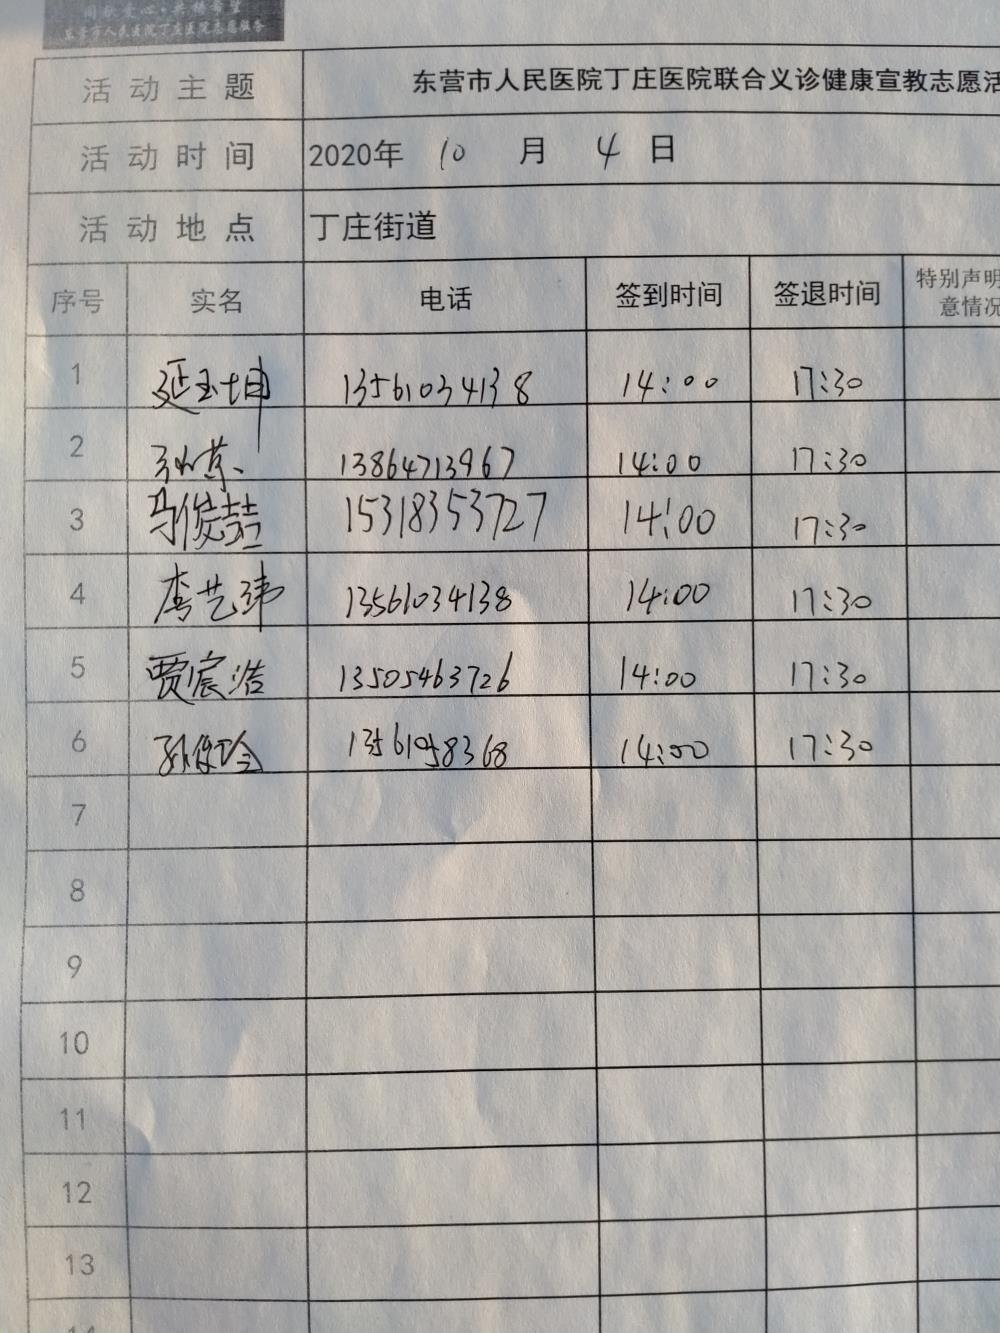 同献爱心·共铸希望
东营市人民医院丁庄医院志愿服务
活动主题 东营市人民医院丁庄医院联合义诊健康宣教志愿活
活动时间 2020年 10 月 4 日
活动地点 丁庄街道
序号 实名 电话 签到时间 签退时间 特别声明
意情况
1 延玉坤 13561034138 14:00 17:30
2 13864713967 14:00 17:30
3 马俊喆 15318353727 14:00 17:30
4 李艺玮 13561034138 14:00 17:30
5 贾宸浩 13505463726 14:00 17:30
6 14:00 17:30
7
8
9
10
11
12
13
14